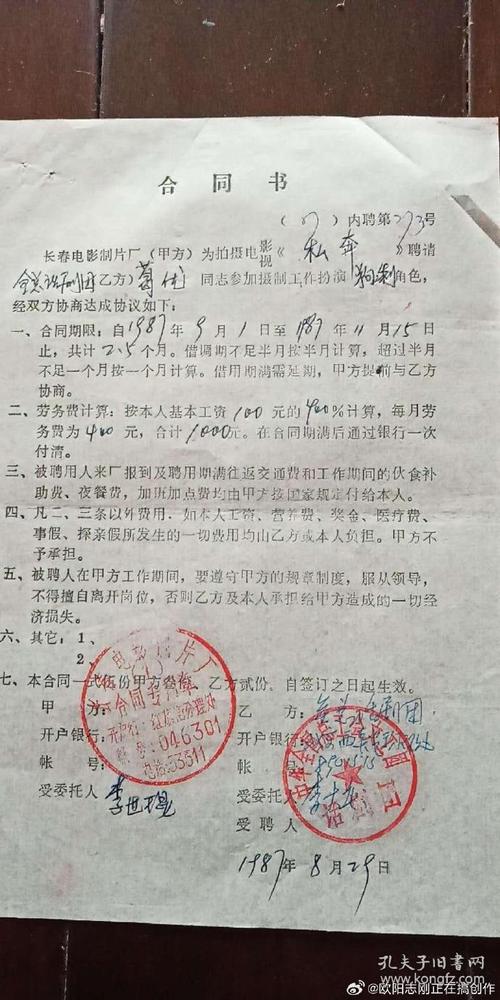 合同书
(87)内聘第273号
长春电影制片厂(甲方)为拍摄电影视《私奔》聘请
全总话剧团乙方)葛优同志参加摄制工作扮演狗剩角色,
经双方协商达成协议如下:
一、合同期限:自1987年9月1日至1987年11月15日
止,共计2.5个月。借调期不足半月按半月计算,超过半月
不足一个月按一个月计算。借用期满需延期,甲方提前与乙方
协商。
二、劳务费计算:按本人基本工资100元的400%计算,每月劳
务费为400元,合计1000元。在合同期满后通过银行一次
付清。
三、被聘用人来厂报到及聘用期满往返交通费和工作期间的伙食补
助费、夜餐费,加班加点费均由甲方按国家规定付给本人。
四、凡二、三条以外费用,如本人工资、营养费、奖金、医疗费、
事假、探亲假所发生的一切费用均由乙方或本人负担。甲方不
予承担。
五、被聘人在甲方工作期间,要遵守甲方的规章制度,服从领导,
不得擅自离开岗位,否则乙方及本人承担给甲方造成的一切经
济损失。
六、其它:1、
2、
七、本合同一式 份甲方 份,乙方贰份,自签订之日起生效。
甲方: 乙方:全总话剧团
开户银行: 开户银行:
帐号: 帐号:
受委托人 李世 受委托人 李
受聘人
电影制片厂
合同专用章
046301
电话:53511
话剧团
1987年8月29日
孔夫子旧书网
www.kongfz.com
@欧阳志刚正在搞创作